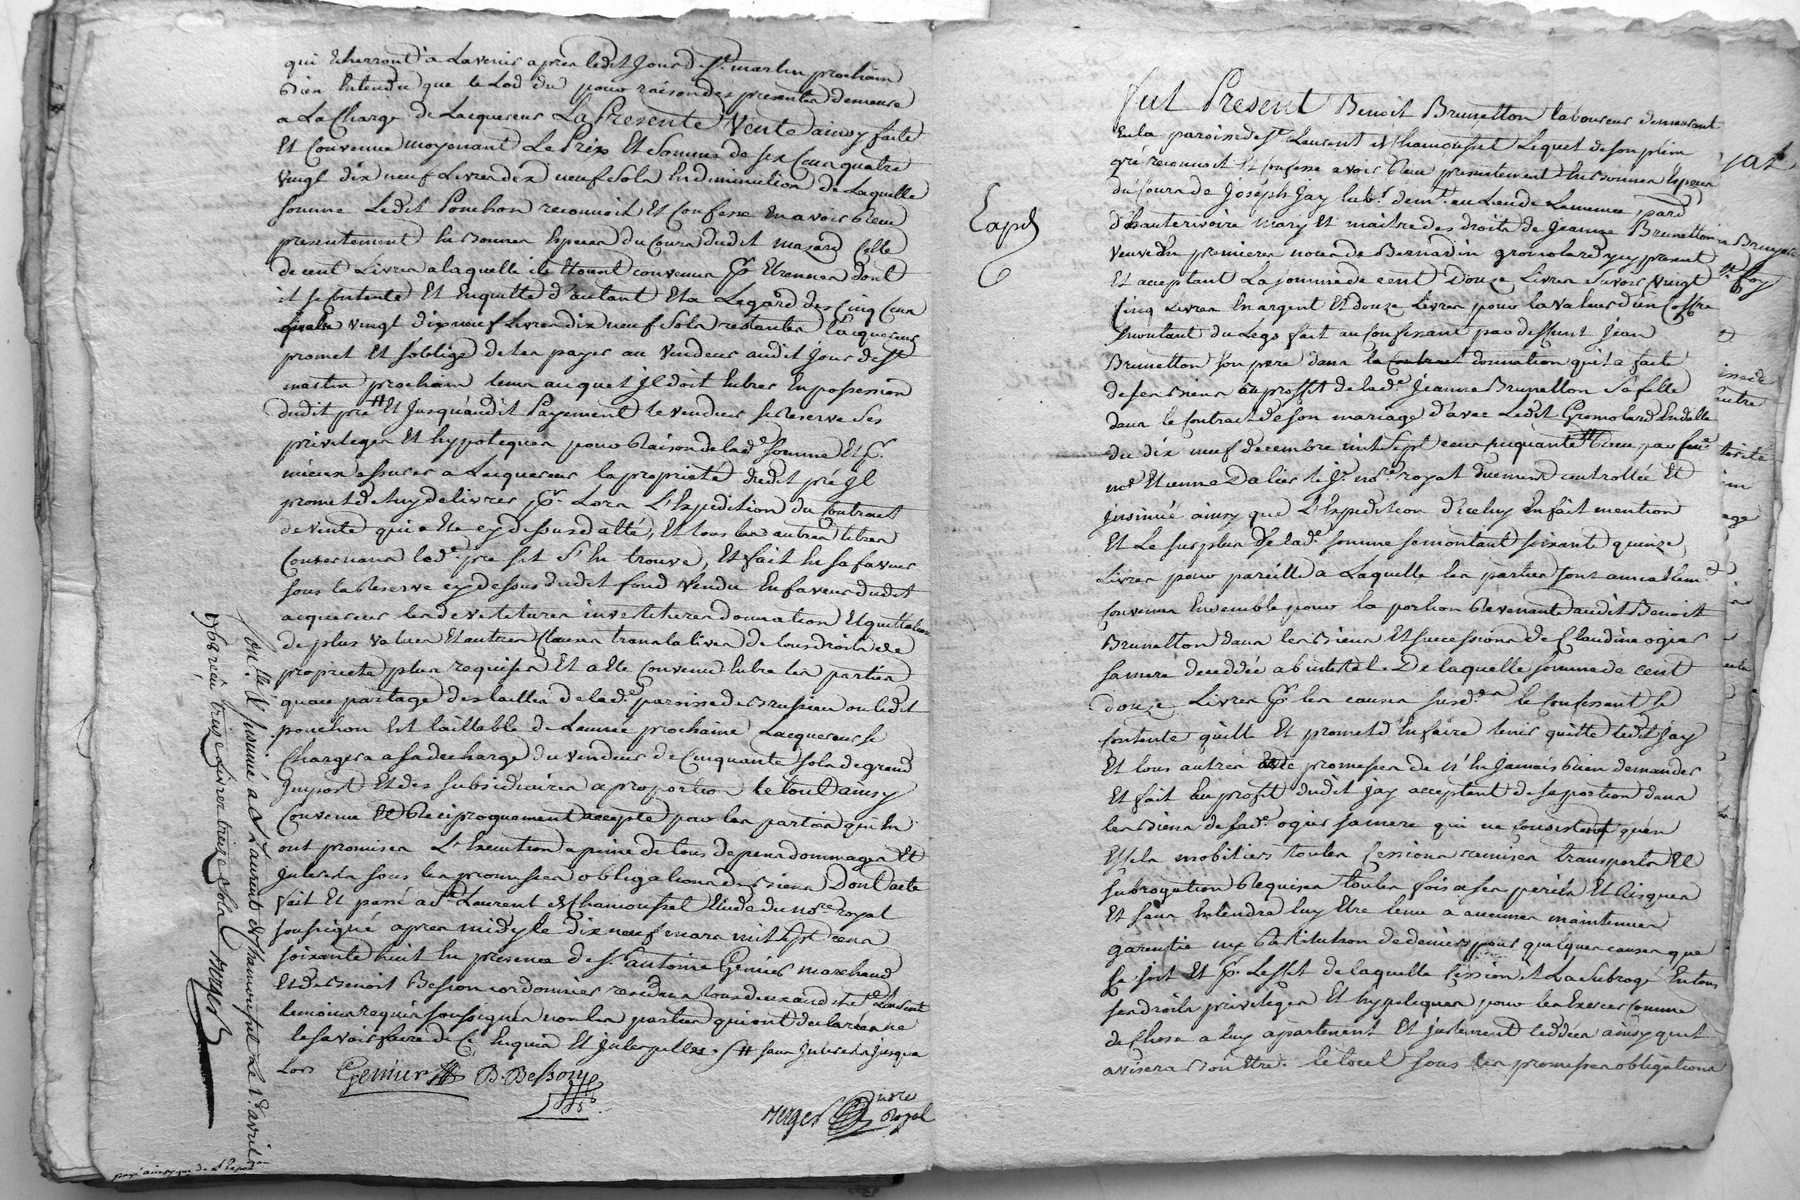 qui Echerront a Lavenir apres ledit Jour de St. martin prochain
Bien Entendu que le Lod du pour raison des presentes demeure
a La Charge de Lacquereur La Presente Vente ainsy faite
Et Convenue moyenant Le Prix Et Somme de six Cens quatre
vingt dix neuf Livres dix neuf Sols En diminution de Laquelle
somme Ledit Ponchon reconnoit Et Confesse En avoir Reçu
presentement En Bonnes Especes du Cours dudit mazard Celle
de cent Livres a laquelle ils Etoient convenus pr. Etrennes dont
il se Contente Et Enquitte d'autant Et a Legard des Cinq Cens
quatre vingt dix neuf Livres dix neuf Sols restantes Lacquereur
promet Et soblige de les payer au Vendeur audit Jour de St
martin prochain tems auquel Il doit Entrer En possession
dudit pré # Et Jusqu'audit Payement le vendeur se Reserve Ses
privileges Et hypoteques pour Raison de lade. Somme Et pr.
mieux assurer a Lacquereur la proprieté dudit pré Il
promet de luy delivrer pr. Lors L'Expedition du Contract
de vente qui a Eté cy dessus datté, Et tous les autres titres
Concernans led. pré sil S'En trouve, Et fait En sa faveur
sous la Reserve cy dessus dudit fond Vendu En faveur dudit
acquereur les devetitures investitures donnation Et quittation
de plus values Et autres Clauses translatives de tous droits de
proprieté plus requises Et a Eté Convenu Entre les parties
quau partage des tailles de lade. paroisse de Brussieu ou ledit
ponchon Est taillable de Lannée prochaine Lacquereur se
Chargera a sa decharge du vendeur de Cinquante Sols de grand
Impost Et des subsidiaires a proportion le tout ainsy
Convenu Et Reciproquement accepté par les parties qui En
ont promises L'Execution a peine de tous depens dommages Et
Interests sous les promesses obligations de Biens Dont acte
fait Et passé a St. Laurent de Chamousset Etude du nore. royal
soussigné apres midy le dix neuf mars mil sept cens
soixante huit En presence de sr. antoine Genier marchand
Et de Benoit Besson cordonnier residans tous deux audit St Laurent
temoins requis soussignés non les parties qui ont declarées ne
le savoir faire de Ce Enquis Et Interpellés. # sans Interests Jusqua
Lors Genier B. Besson
Merger nore Royal
Con.lé & Insinué a St Laurent de Chamousset le 1er avril
1768 reçu treize Livres treize Sols Merger
Expd
fut Present Benoit Brunetton laboureur demeurant
En la paroisse de St Laurent de Chamousset Lequel de son plein
gré reconnoit Et confesse avoir Reçu presentement En Bonnes Especes
du Cours de Joseph Jay labr. demt. au Lieu de
d'hauterivoire Mary Et maitre des droits de Jeanne Brunetton
veuve En premieres noces de Bernardin gromolard icy present
Et acceptant La somme de cent Douze Livres Savoir Vingt
Cinq Livres En argent Et douze Livres pour la valeur d'un Coffre
montant du Legs fait au Confessant par deffunt Jean
Brunetton Son pere dans la donnation qu'il a faite
de ses Biens au proffit de lade. Jeanne Brunetton Sa fille
dans le Contrat de son mariage d'avec Ledit Gromolard En datte
du dix neuf decembre mil Sept cens cinquante reçu par feu
me Etienne Dalier le Je. nore. royal duement controllée Et
insinué ainsy que L'Expedition d'iceluy En fait mention
Et Le surplus de lade. somme se montant soixante quinze
Livres pour pareille a Laquelle les parties sont amicablemt.
convenues Ensemble pour la portion Revenante audit Benoit
Brunetton dans les Biens Et successions de Claudine ogier
sa mere decedée ab intestat De laquelle somme de cent
douze Livres pr. les causes susdes. le Confessant se
Contente quitte Et promet d'En faire tenir quitte ledit Jay
Et tous autres de promesses de n'En Jamais rien demander
Et fait au profit dudit Jay acceptant de sa portion dans
les Biens de lade. ogier sa mere qui ne consistent qu'en
Effets mobiliers toutes Cessions remises transports Et
subrogation Requises toutes fois a ses perils Et Risques
Et sans Entendre luy Etre tenu a aucunes maintenues
garentie ny Restitution de deniers pour quelques causes que
Ce soit Et pr. Leffet de laquelle Cession Il La Subrogé En tous
ses droits privileges Et hypoteques pour les Exercer comme
de Chose a luy apartenent Et justement Cedées ainsy quil
avisera Bon Etre. le tout sous les promesses obligations